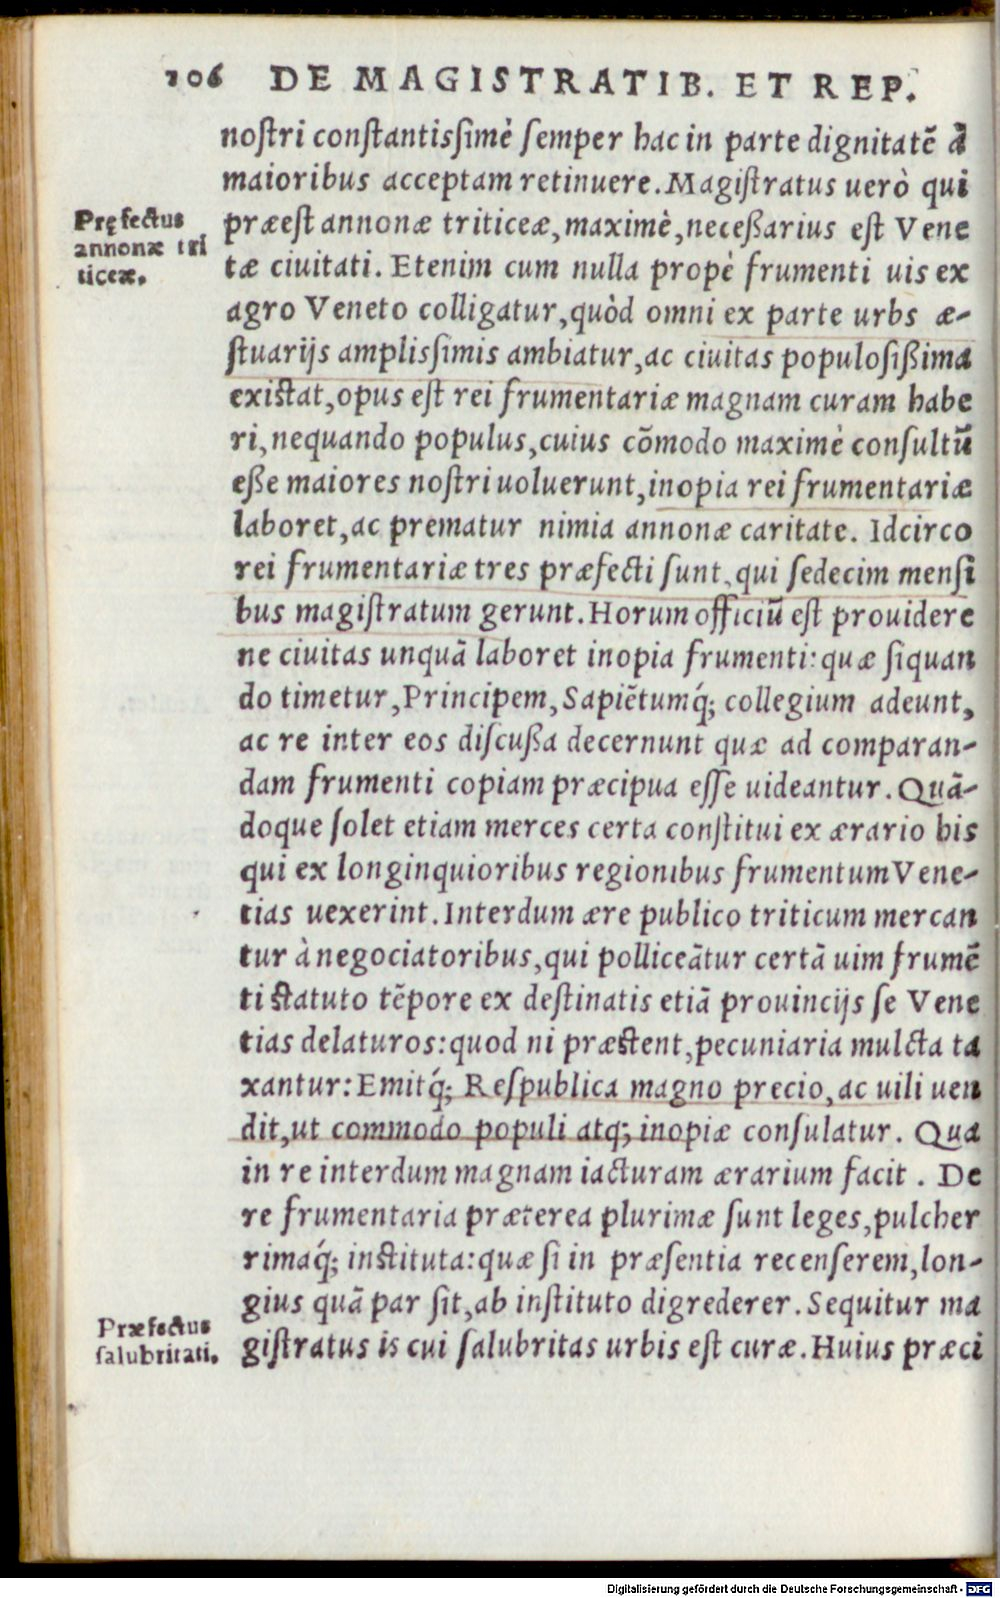 106 DE MAGISTRATIB. ET REP.
noſtri conſtantisſimè ſemper hac in parte dignitatē à
maioribus acceptam retinuere. Magiſtratus uerò qui
Pręfectus
annonæ tri
ticeæ.
præeſt annonæ triticeæ, maximè, neceßarius eſt Vene
tæ ciuitati. Etenim cum nulla propè frumenti uis ex
agro Veneto colligatur, quòd omni ex parte urbs æ-
ſtuarijs amplisſimis ambiatur, ac ciuitas populoſißima
exiſtat, opus eſt rei frumentariæ magnam curam habe
ri, nequando populus, cuius cōmodo maximè conſultū
eße maiores noſtri uoluerunt, inopia rei frumentariæ
laboret, ac prematur nimia annonæ caritate. Idcirco
rei frumentariæ tres præfecti ſunt, qui ſedecim menſi
bus magiſtratum gerunt. Horum officiū eſt prouidere
ne ciuitas unquā laboret inopia frumenti: quæ ſiquan
do timetur, Principem, Sapiētumq́; collegium adeunt,
ac re inter eos diſcußa decernunt quæ ad comparan-
dam frumenti copiam præcipua eſſe uideantur. Quā-
doque ſolet etiam merces certa conſtitui ex ærario his
qui ex longinquioribus regionibus frumentum Vene-
tias uexerint. Interdum ære publico triticum mercan
tur à negociatoribus, qui polliceātur certā uim frumē
ti ſtatuto tēpore ex deſtinatis etiā prouincijs ſe Vene
tias delaturos: quod ni præſtent, pecuniaria mulcta ta
xantur: Emitq́; Reſpublica magno precio, ac uili uen
dit, ut commodo populi atq; inopiæ conſulatur. Qua
in re interdum magnam iacturam ærarium facit. De
re frumentaria præterea plurimæ ſunt leges, pulcher
rimaq́; inſtituta: quæ ſi in præſentia recenſerem, lon-
gius quā par ſit, ab inſtituto digrederer. Sequitur ma
Præfectus
ſalubritati.
giſtratus is cui ſalubritas urbis eſt curæ. Huius præci
Digitalisierung gefördert durch die Deutsche Forschungsgemeinschaft - DFG